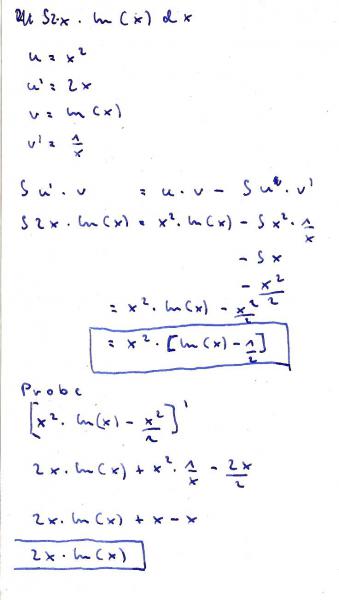 ∫2x · ln(x) dx
u = x²
u' = 2x
v = ln(x)
v' = 1/x
∫ u' · v = u · v - ∫ u · v'
∫ 2x · ln(x) = x² · ln(x) - ∫ x² · 1/x
- ∫ x
- x²/2
= x² · ln(x) - x²/2
= x² · [ln(x) - 1/2]
Probe
[x² · ln(x) - x²/2]'
2x · ln(x) + x² · 1/x - 2x/2
2x · ln(x) + x - x
2x · ln(x)